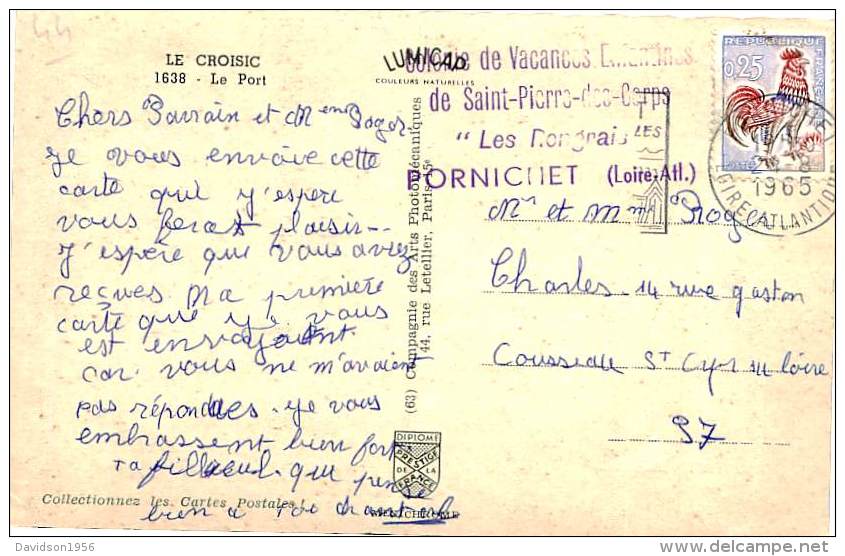 44
LE CROISIC
1638 - Le Port
LUMICAP
COULEURS NATURELLES
Colonie de Vacances Enfantines
de Saint-Pierre-des-Corps
"Les Dongrais"
LES
PORNICHET (Loire-Atl.)
REPUBLIQUE FRANÇAISE
0,25
POSTES
1965
LOIRE ATLANTIQUE
Chers Parrain et
je vous envoie cette
carte qui j'espere
vous feras plaisir...
J'espère que vous aviez
reçues ma première
carte que je vous
est envoyaient
car vous ne m'avaient
pas répondues. je vous
embrassent bien fort
ta filleul. qui pense
bien a toi
Collectionnez les Cartes Postales !
(63) Compagnie des Arts Photomécaniques
44, rue Letellier, Paris-15e
DIPLOME
PRESTIGE
DE LA
FRANCE
MEXICHROME
Mr et Mme Rog
Charles. 14 rue gaston
Cousseau St Cyr su loire
37
Davidson1956
http://www.delcampe.net